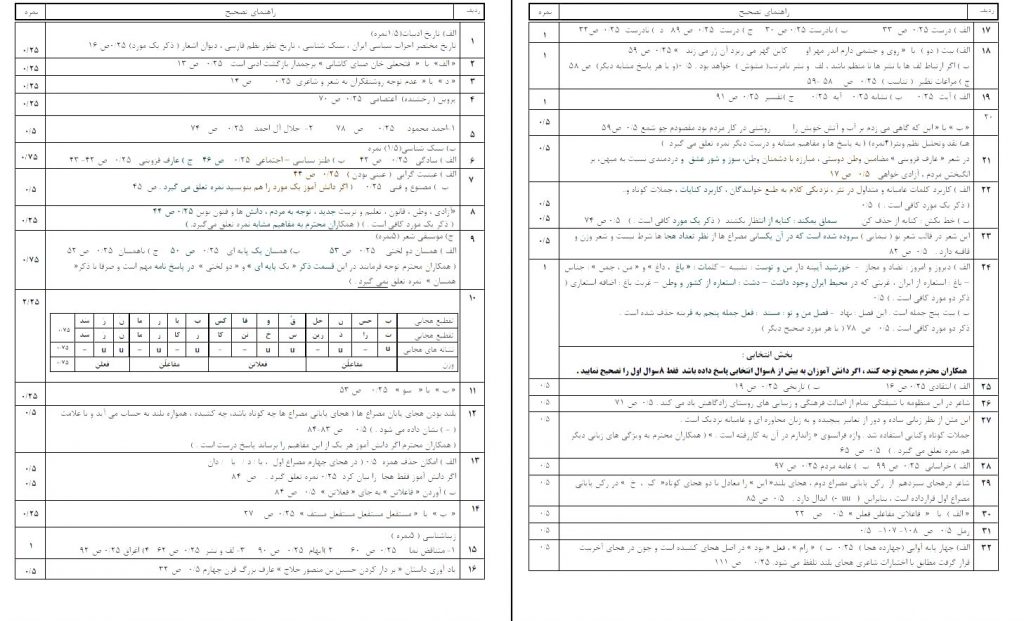 ردیف راهنمای تصحیح نمره
الف) تاریخ ادبیات(۱/۵نمره)
۱ تاریخ مختصر احزاب سیاسی ایران ، سبک شناسی ، تاریخ تطور نظم فارسی ، دیوان اشعار ( ذکر یک مورد) ۰/۲۵ ص ۱۶ ۰/۲۵
۲ «الف» یا « فتحعلی خان صبای کاشانی » پرچمدار بازگشت ادبی است ۰/۲۵ ص ۱۳ ۰/۲۵
۳ « د » یا « عدم توجه روشنفکران به شعر و شاعری ۰/۲۵ ص ۱۴ ۰/۲۵
۴ پروین ( رخشنده) اعتصامی ۰/۲۵ ص ۷۰ ۰/۲۵
۵ ۱-احمد محمود ۰/۲۵ ص ۷۸ ۲- جلال آل احمد ۰/۲۵ ص ۷۴ ۰/۵
ب) سبک شناسی(۱/۵) نمره
۶ الف ) سادگی ۰/۲۵ ص ۴۲ ب ) طنز سیاسی – اجتماعی ۰/۲۵ ص ۴۶ ج ) عارف قزوینی ۰/۲۵ ص ۴۲-۴۳ ۰/۷۵
۷ الف ) عینیت گرایی ( عینی بودن ) ۰/۲۵ ص ۴۴
ب ) مصنوع و فنی ۰/۲۵ ( اگر دانش آموز یک مورد را هم بنویسید نمره تعلق می گیرد . ص ۴۵ ۰/۵
۸ «آزادی ، وطن ، قانون ، تعلیم و تربیت جدید ، توجه به مردم ، دانش ها و فنون نوین ۰/۲۵ ص ۴۴
( ذکر یک مورد کافی است . ) ( همکاران محترم به مفاهیم مشابه نمره تعلق می‌گیرد. ) ۰/۲۵
ج) موسیقی شعر (۵نمره)
۹ الف ) همسان دو لختی ۰/۲۵ ص ۵۳ ب) همسان یک پایه ای ۰/۲۵ ص ۵۰ ج ) ناهمسان ۰/۲۵ ص ۵۲
( همکاران محترم توجه فرمایند در این قسمت ذکر « یک پایه ای » و « دو لختی » در پاسخ نامه مهم است و صرفا با ذکر«
همسان » نمره تعلق نمی گیرد . ) ۰/۷۵
۱۰ ۲/۲۵
تقطیع هجایی ۰/۷۵
تقطیع هجایی
نشانه های هجایی ۰/۷۵
وزن مفاعلن فعلاتن مفاعلن فعلن ۰/۷۵
۱۱ « ب » یا « سو » ۰/۲۵ ص ۵۳ ۰/۲۵
۱۲ بلند بودن هجای پایان مصراع ها ( هجای پایانی مصراع ها چه کوتاه باشد، چه کشیده ، همواره بلند به حساب می آید و با علامت
( - ) نشان داده می شود . ) ۰/۵ ص ۸۳-۸۴
( همکاران محترم اگر دانش آموز هر یک از این مفاهیم را برساند پاسخ درست است . ) ۰/۵
۱۳ الف ) امکان حذف همزه ۰/۵ ( در هجای چهارم مصراع اول
اگر دانش آموز فقط هجا را بیان کرد ۰/۲۵ نمره تعلق گیرد . ص ۸۴ ۰/۵
ب ) آوردن « فاعلاتن » به جای « فعلاتن » ۰/۵ ص ۸۴ ۰/۵
۱۴ « ب » یا « مستفعل مستفعل مستفعل مستف » ۰/۲۵ ص ۲۷ ۰/۲۵
زیباشناسی ( ۵نمره )
۱۵ ۱- متناقض نما ۰/۲۵ ص ۶۰ ۲)ایهام ۰/۲۵ ص ۹۰ ۳- لف و نشر ۰/۲۵ ص ۶۲ ۴) اغراق ۰/۲۵ ص ۹۲ ۱
۱۶ یاد آوری داستان « بر دار کردن حسین بن منصور حلاج » عارف بزرگ قرن چهارم ۰/۵ ص ۳۲ ۰/۵
ردیف راهنمای تصحیح نمره
۱۷ الف ) درست ۰/۲۵ ص ۳۳ ب ) نادرست ۰/۲۵ ص ۳۰ ج ) درست ۰/۲۵ ص ۸۹ د ) نادرست ۰/۲۵ ص ۳۲ ۱
۱۸ الف ) بیت ( دو ) یا « روی و چشمی دارم اندر مهر او کاین گهر می ریزد آن زر می زند » ۰/۲۵ ص ۵۹
ب ) اگر ارتباط لف ها با نشر ها نا منظم باشد ، لف و نشر نامرتب( مشوش ) خواهد بود . ۰/۵ (و یا هر پاسخ مشابه دیگر) ص ۵۸
ج ) مراعات نظیر ( تناسب ) ۰/۲۵ ص ۵۸-۵۹ ۱
۱۹ الف ) آیت ۰/۲۵ ب ) نشانه ۰/۲۵ آیه ۰/۲۵ ج )تفسیر ۰/۲۵ ص ۹۱ ۱
۲۰ « ب » یا « این که گاهی می زدم بر آب و آتش خویش را روشنی در کار مردم بود مقصودم چو شمع ۰/۵ ص۵۹ ۰/۵
هـ) نقد و تحلیل نظم ونثر(۴نمره) ( به پاسخ ها و مفاهیم مشابه و درست دیگر نمره تعلق می گیرد )
۲۱ در شعر « عارف قزوینی » مضامین وطن دوستی ، مبارزه با دشمنان وطن، سوز و شور عشق و دردمندی نسبت به میهن، بر
انگیختن مردم ، آزادی خواهی ۰/۵ ص ۱۷ ۰/۵
۲۲ الف ) کاربرد کلمات عامیانه و متداول در نثر ، نزدیکی کلام به طبع خوانندگان ، کاربرد کنایات ، جملات کوتاه و.
( ذکر یک مورد کافی است . ) ۰/۵ ۰/۵
ب ) خط بکش : کنایه از حذف کن سماق بمکند : کنایه از انتظار بکشند ( ذکر یک مورد کافی است . ) ۰/۵ ص ۷۴ ۰/۵
۲۳ این شعر در قالب شعر نو ( نیمایی ) سروده شده است که در آن یکسانی مصراع ها از نظر تعداد هجا ها شرط نیست و شعر وزن و
قافیه دارد . ۰/۵ ص ۸۲ ۰/۵
۲۴ الف ) دیروز و امروز : تضاد و مجاز - خورشید آیینه دار من و توست : تشبیه – کلمات : « باغ ، داغ » و « من ، چمن » : جناس
– باغ : استعاره از ایران ، غربتی که در محیط ایران وجود داشت – دشت : استعاره از کشور و وطن – غربت باغ : اضافه استعاری (
ذکر دو مورد کافی است . ) ۰/۵
ب ) بیت پنج جمله است . این فصل : نهاد - فصل من و تو : مسند : فعل جمله پنجم به قرینه حذف شده است .
ذکر دو مورد کافی است . ۰/۵ ص ۷۸ ( یا هر مورد صحیح دیگر ) ۱
بخش انتخابی :
همکاران محترم مصحح توجه کنند ، اگر دانش آموزان به بیش از ۸سوال انتخابی پاسخ داده باشد فقط ۸سوال اول را تصحیح نمایید .
۲۵ الف ) انتقادی ۰/۲۵ ص ۱۶ ب ) تاریخی ۰/۲۵ ص ۱۹ ۰/۵
۲۶ شاعر در این منظومه با شیفتگی تمام از اصالت فرهنگی و زیبایی های روستای زادگاهش یاد می کند . ۰/۵ ص ۷۱ ۰/۵
۲۷ این متن از نظر زبانی ساده و دور از تعابیر پیچیده و به زبان محاوره ای و عامیانه نزدیک است .
جملات کوتاه وکنایی استفاده شد . واژه فرانسوی « ژاندارم در آن به کاررفته است . » ( همکاران محترم به ویژگی های زبانی دیگر
هم نمره تعلق می گیرد . ) ۰/۵ ص ۶۵ ۰/۵
۲۸ الف ) خراسانی ۰/۲۵ ص ۹۹ ب ) عامه مردم ۰/۲۵ ص ۹۷ ۰/۵
۲۹ شاعر درهجای سیزدهم از رکن پایانی مصراع دوم ، هجای بلند« این » را معادل با دو هجای کوتاه« گـ ـِ ، خـ » در رکن پایانی
مصراع اول قرارداده است ، بنابراین ( - uu ) ابدال دارد . ۰/۵ ص ۸۵ ۰/۵
۳۰ « الف ) یا « فاعلاتن مفاعلن فعلن » ۰/۵ ص ۲۲ ۰/۵
۳۱ رمل ۰/۵ ص ۱۰۸-۱۰۷ ۰/۵ ۰/۵
۳۲ الف) چهار پایه آوایی (چهارده هجا ) ۰/۲۵ ب ) « رام » ، فعل « بود » در اصل هجای کشیده است و چون در هجای آخربیت
قرار گرفت مطابق با اختیارات شاعری هجای بلند تلفظ می شود. ۰/۲۵ ص ۱۱۱ ۰/۵